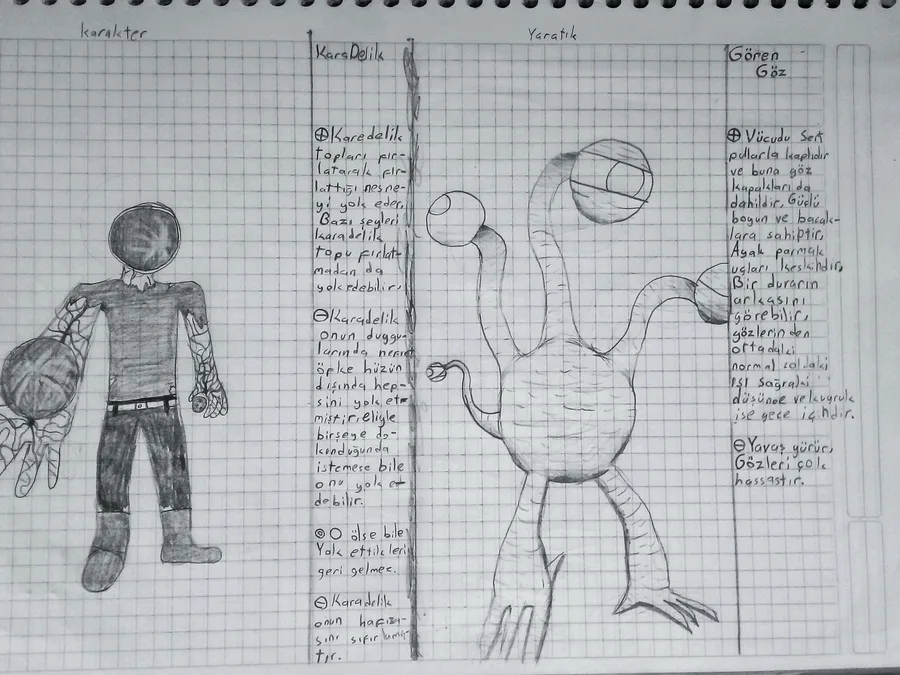 karakter
KaraDelik
⊕Karedelik
topları fır-
latarak fır-
lattığı nesne-
yi yok eder.
Bazı şeyleri
karadelik
topu fırlat-
madan da
yokedebilir.
⊖Karadelik
onun duygu-
larında nefret
öfke hüzün
dışında hep-
sini yok et-
miştir eliyle
birşeye do-
kunduğunda
istemese bile
onu yok e-
debilir.
ölse bile
Yok ettikleri
geri gelmez.
⊖Karadelik
onun hafıza-
sını sıfırlamış-
tır.
Yaratık
Gören
Göz
⊕ Vücudu Sert
pullarla kaplıdır
ve buna göz
kapakları da
dahildir. Güçlü
boyun ve bacak-
lara sahiptir.
Ayak parmak
uçları keskindir.
Bir duvarın
arkasını
görebilir,
gözlerinden
ortadaki
normal soldaki
ısı sağdaki
düşünce ve kuyruk
ise gece içindir.
⊖Yavaş yürür,
Gözleri çok
hassastır.